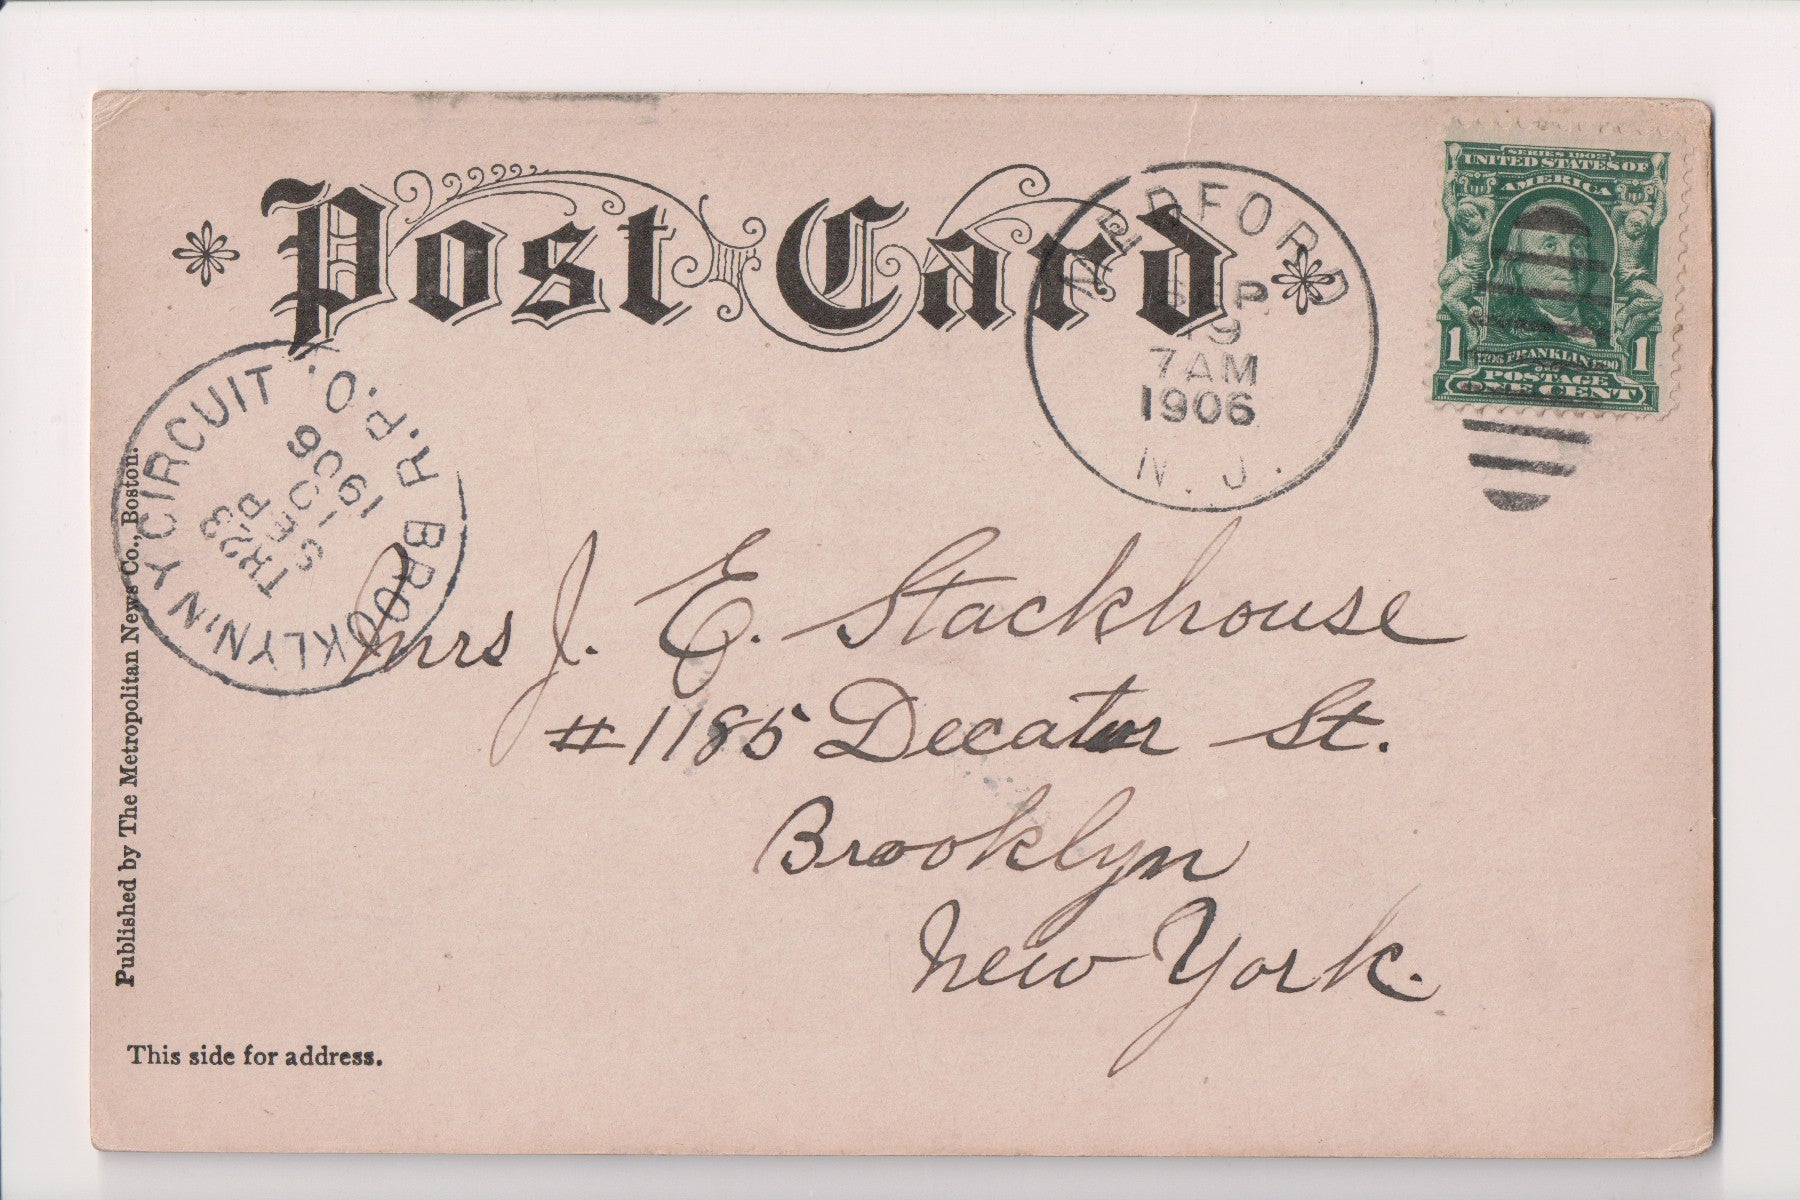 Post Card
MEDFORD
SEP
19
7 AM
1906
N. J.
SERIES 1902
UNITED STATES OF
AMERICA
1 1706 FRANKLIN 1790 1
POSTAGE
ONE CENT
BROOKLYN, N Y CIRCUIT R.P.O.
TR23
SEP
1906
Mrs J. E. Stackhouse
#1185 Decatur St.
Brooklyn
New York.
Published by The Metropolitan News Co., Boston.
This side for address.